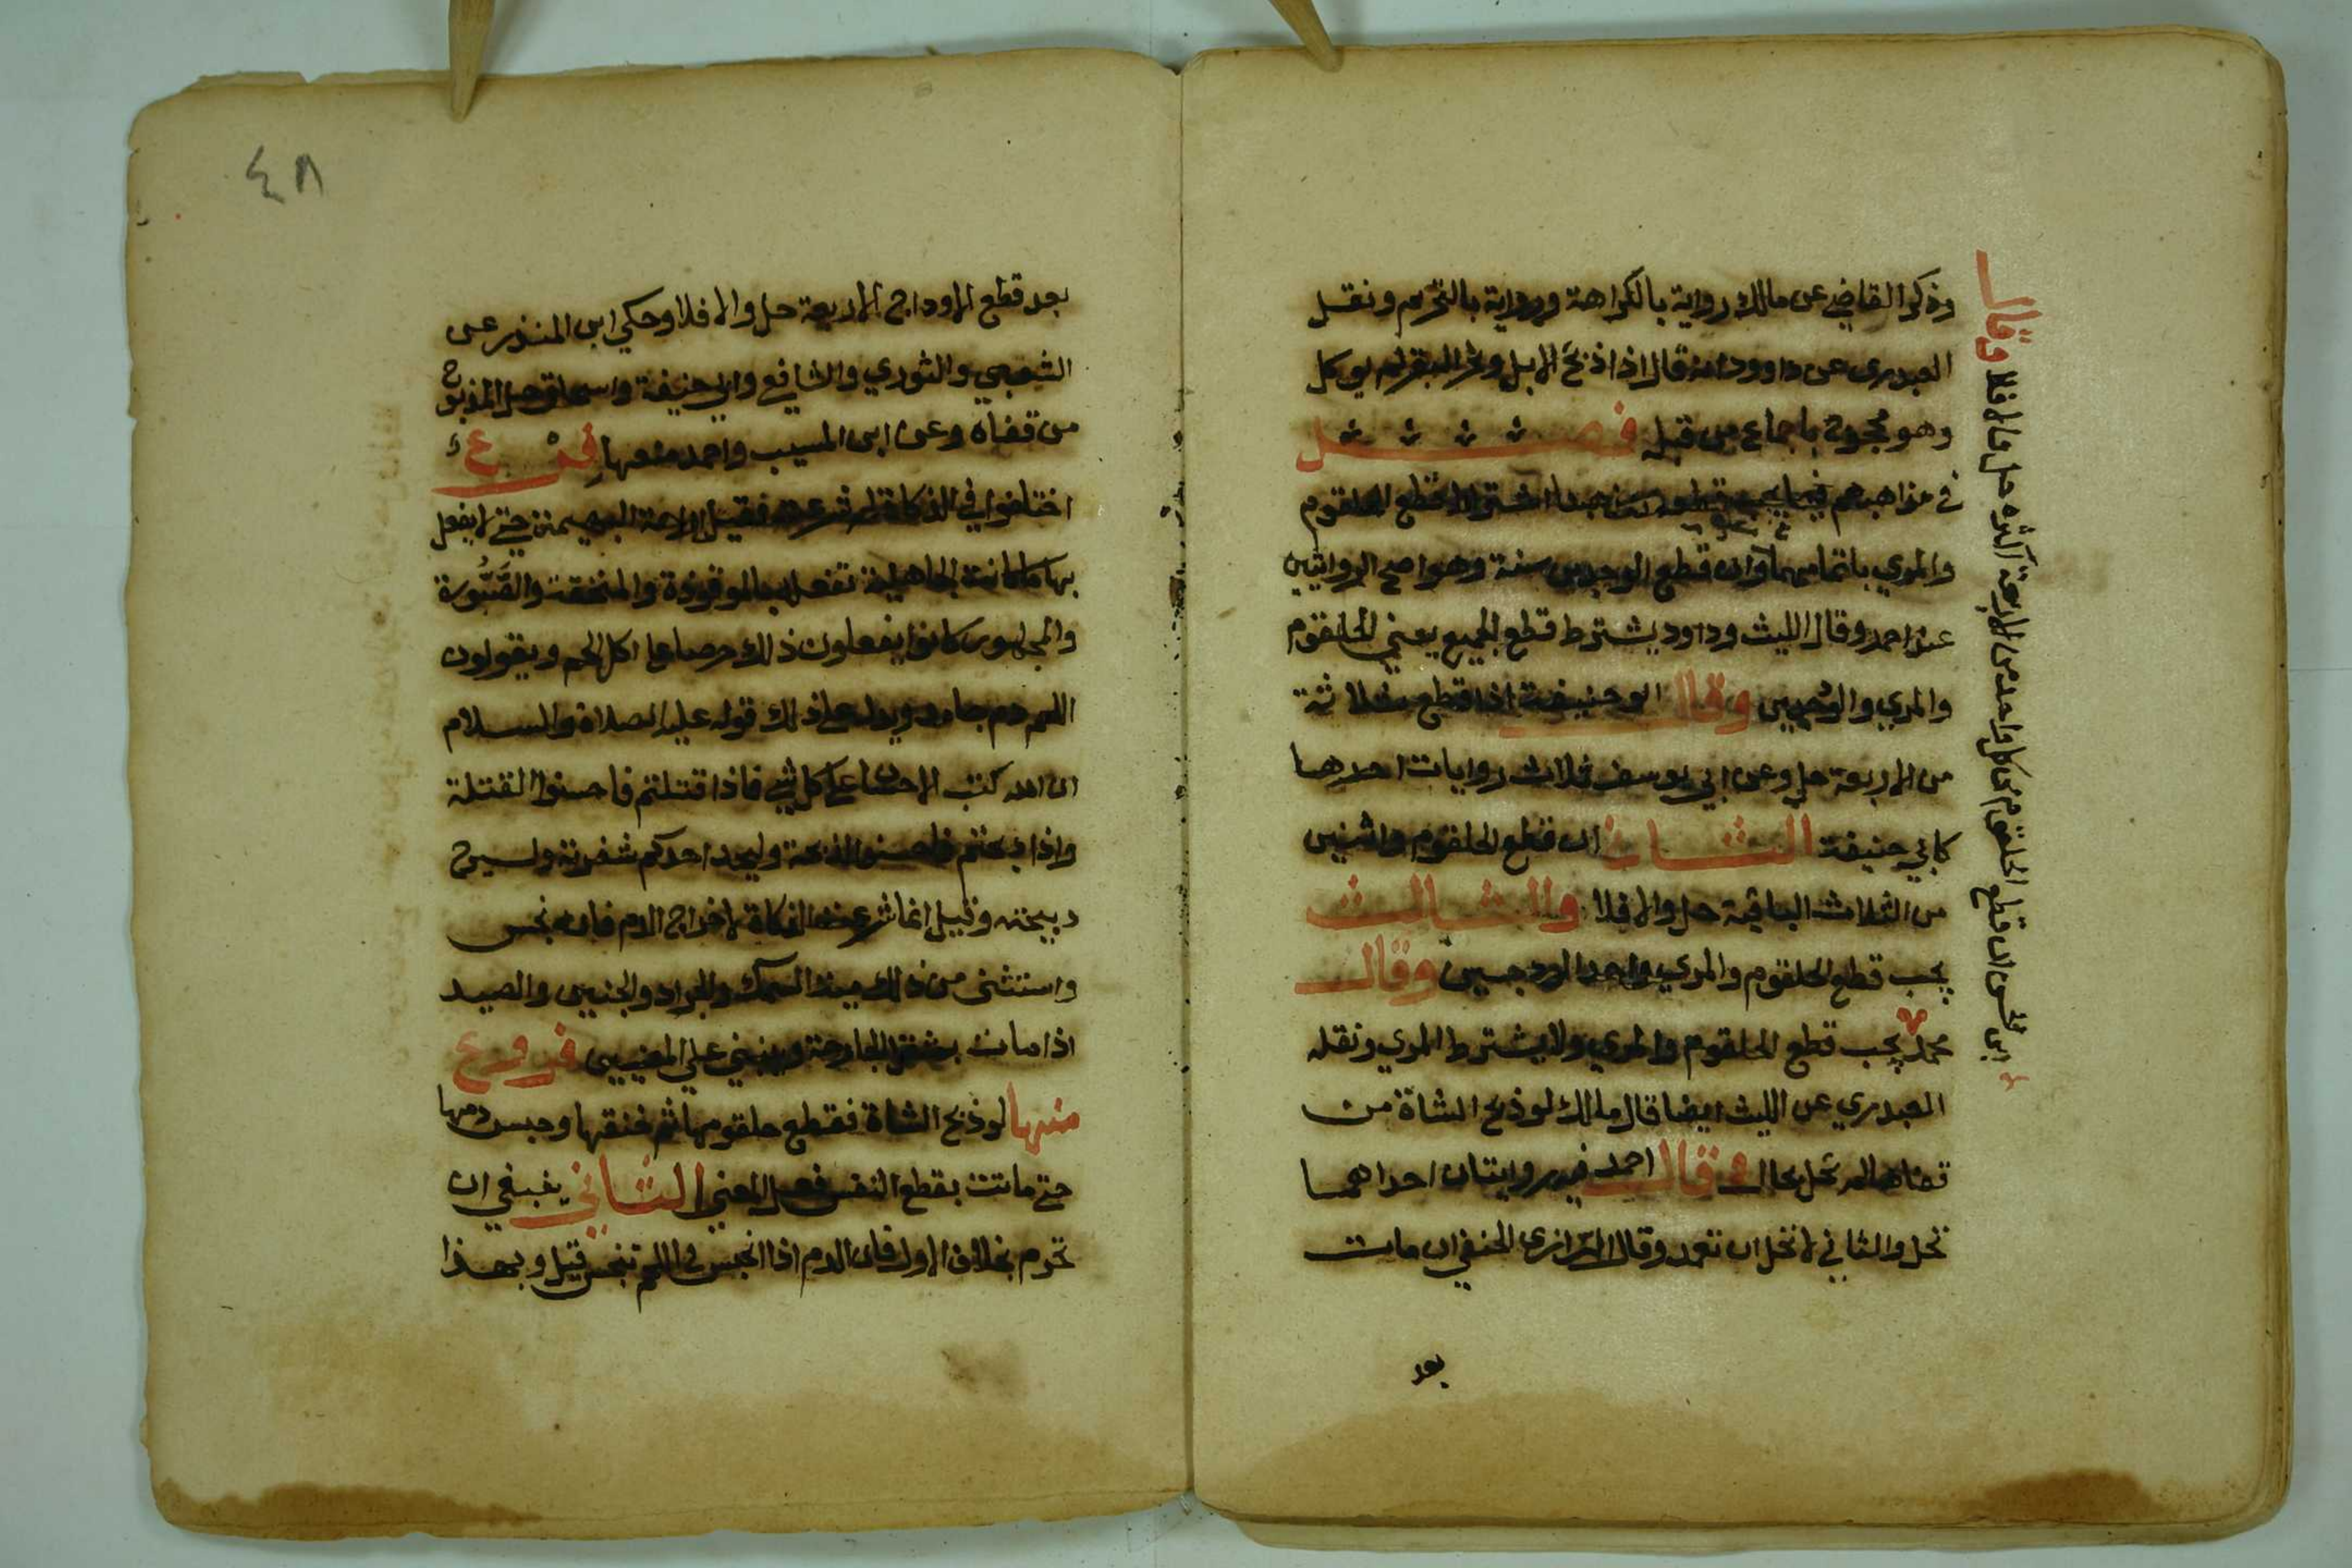 وذكر القاضي عن مالك رواية بالكراهة ورواية بالتحريم ونقل
العبدري عن داوود انه قال اذا ذبح الابل ونحر البقر لم يوكل
وهو محجوج باجماع من قبله فصــــل
في مذاهبهم فيما يجب قطعه مذهبنا اشتراط قطع الحلقوم
والمري بتمامهما وان قطع الودجين سنة وهو اصح الروايتين
عن احمد وقال الليث وداود يشترط قطع الجميع يعني الحلقوم
والمري والودجين وقال ابو حنيفة اذا قطع ثلاثة
من الاربعة حل وعن ابي يوسف ثلاث روايات احدها
كابي حنيفة الثاني ان قطع الحلقوم واثنين
من الثلاث الباقية حل والا فلا والثالث
يجب قطع الحلقوم والمري واحد الودجين وقال
محمد يجب قطع الحلقوم والمري ولا يشترط المري ونقله
العبدري عن الليث ايضا قال مالك لو ذبح الشاة من
قفاها لم تحل بحال وقال احمد فيه روايتان احداهما
تحل والثاني لا تحل ان تعمد وقال الرازي الحنفي ان ماتت
بعد
وقال
ابن الحسن ان قطع الحلقوم من كل واحد من الاربعة اكثره حل والا فلا
٤٨
بعد قطع الاوداج الاربعة حل والا فلا وحكي ابن المنذر عن
الشعبي والثوري والشافع وابي حنيفة واسحاق حل المذبوح
من قفاه وعن ابن المسيب واحمد منعها فرع
اختلفوا في الذكاة لم شرعت فقيل لاراحة البهيمة حتى لا يفعل
بها ما كانت الجاهلية تفعله بالموقوذة والمنخنقة
والمجوس كانوا يفعلون ذلك حرصا على اكل لحم ويقولون
اللحم دم جامد ويدل على ذلك قوله عليه الصلاة والسلام
ان الله كتب الاحسان على كل شي فاذا قتلتم فاحسنوا القتلة
واذا ذبحتم فاحسنوا الذبحة وليحد احدكم شفرته وليرح
ذبيحته وقيل انما شرعت الذكاة لاخراج الدم فانه نجس
واستثنى من ذلك ميتة السمك والجراد والجنين والصيد
اذا مات بثقل الجارحة وينبني علي المعنيين فروع
منها لو ذبح الشاة فقطع حلقومها ثم خنقها وحبس دمها
حتى ماتت بقطع النفس فعلى المعني الثاني ينبغي ان
تحرم بخلاف الاول فان الدم اذا انحبس في اللحم تنجس قيل وبهذا